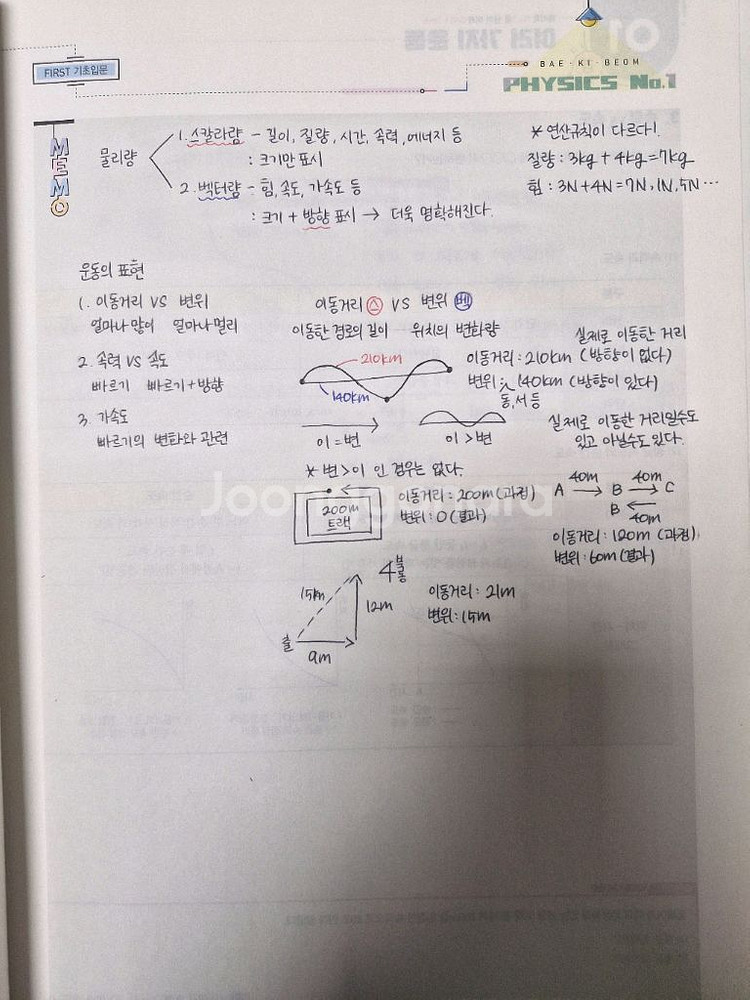 FIRST 기초입문
BAE·KI·BEOM
PHYSICS No.1
MEMO
물리량
1. 스칼라량 - 길이, 질량, 시간, 속력, 에너지 등
: 크기만 표시
2. 벡터량 - 힘, 속도, 가속도 등
: 크기 + 방향 표시 → 더욱 명확해진다.
* 연산규칙이 다르다!
질량 : 3kg + 4kg = 7kg
힘 : 3N + 4N = 7N, 1N, 5N ...
운동의 표현
1. 이동거리 VS 변위
얼마나 많이 얼마나 멀리
2. 속력 VS 속도
빠르기 빠르기 + 방향
3. 가속도
빠르기의 변화와 관련
이동거리 스 VS 변위 벡
이동한 경로의 길이 위치의 변화량
210km
140km
실제로 이동한 거리
이동거리 : 210km (방향이 없다)
변위 : 140km (방향이 있다)
동, 서 등
이 = 변
이 > 변
실제로 이동한 거리일수도
있고 아닐수도 있다.
* 변 > 이 인 경우는 없다.
200m
트랙
이동거리 : 200m (과정)
변위 : 0 (결과)
40m 40m
A → B → C
B ←
40m
이동거리 : 120m (과정)
변위 : 60m (결과)
15m
12m
9m
출
4
이동거리 : 21m
변위 : 15m
Joonggonara